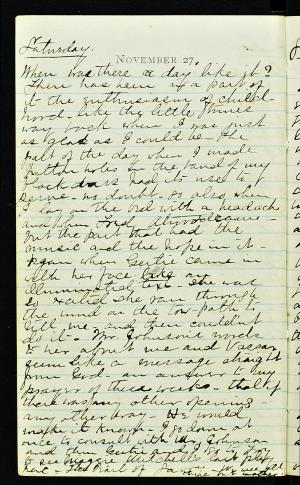 Saturday.
NOVEMBER 27.
When was there a day like it?
There has been in a part of
it the enthusiasm of child-
hood - like the little Minnie
way back when I was just
as glad as I could be - the
part of the day when I made
button holes in the band of my
black had its use to
serve - no doubt. So also when
I lay on the bed with a headache
and
But the part that had the
music and the hope in it -
when Gertie came in
with her face like an
illuminated text - she was
so excited she ran through
the wind on the tow-path to
tell me - and then couldn't
do it - Mr Johnson's words
to her about me and
seem like a message straight
from God - an answer to my
prayer of these weeks - that if
there was any other opening -
any other way - He would
make it known - I go down at
once to consult with Mr Johnson
and then Gertie and I
to see Maggie Mitchell in
- This Part of